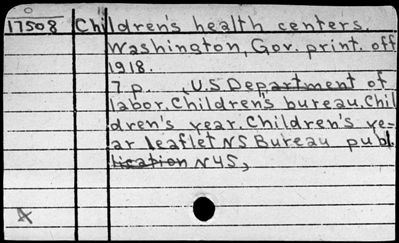 17508 Children's health centers.
Washington, Gov. print. off
1918.
7 p. , U.S Department of
labor. Children's bureau. Chil
dren's year. Children's ye-
ar leaflet NS Bureau publ
lication N45,